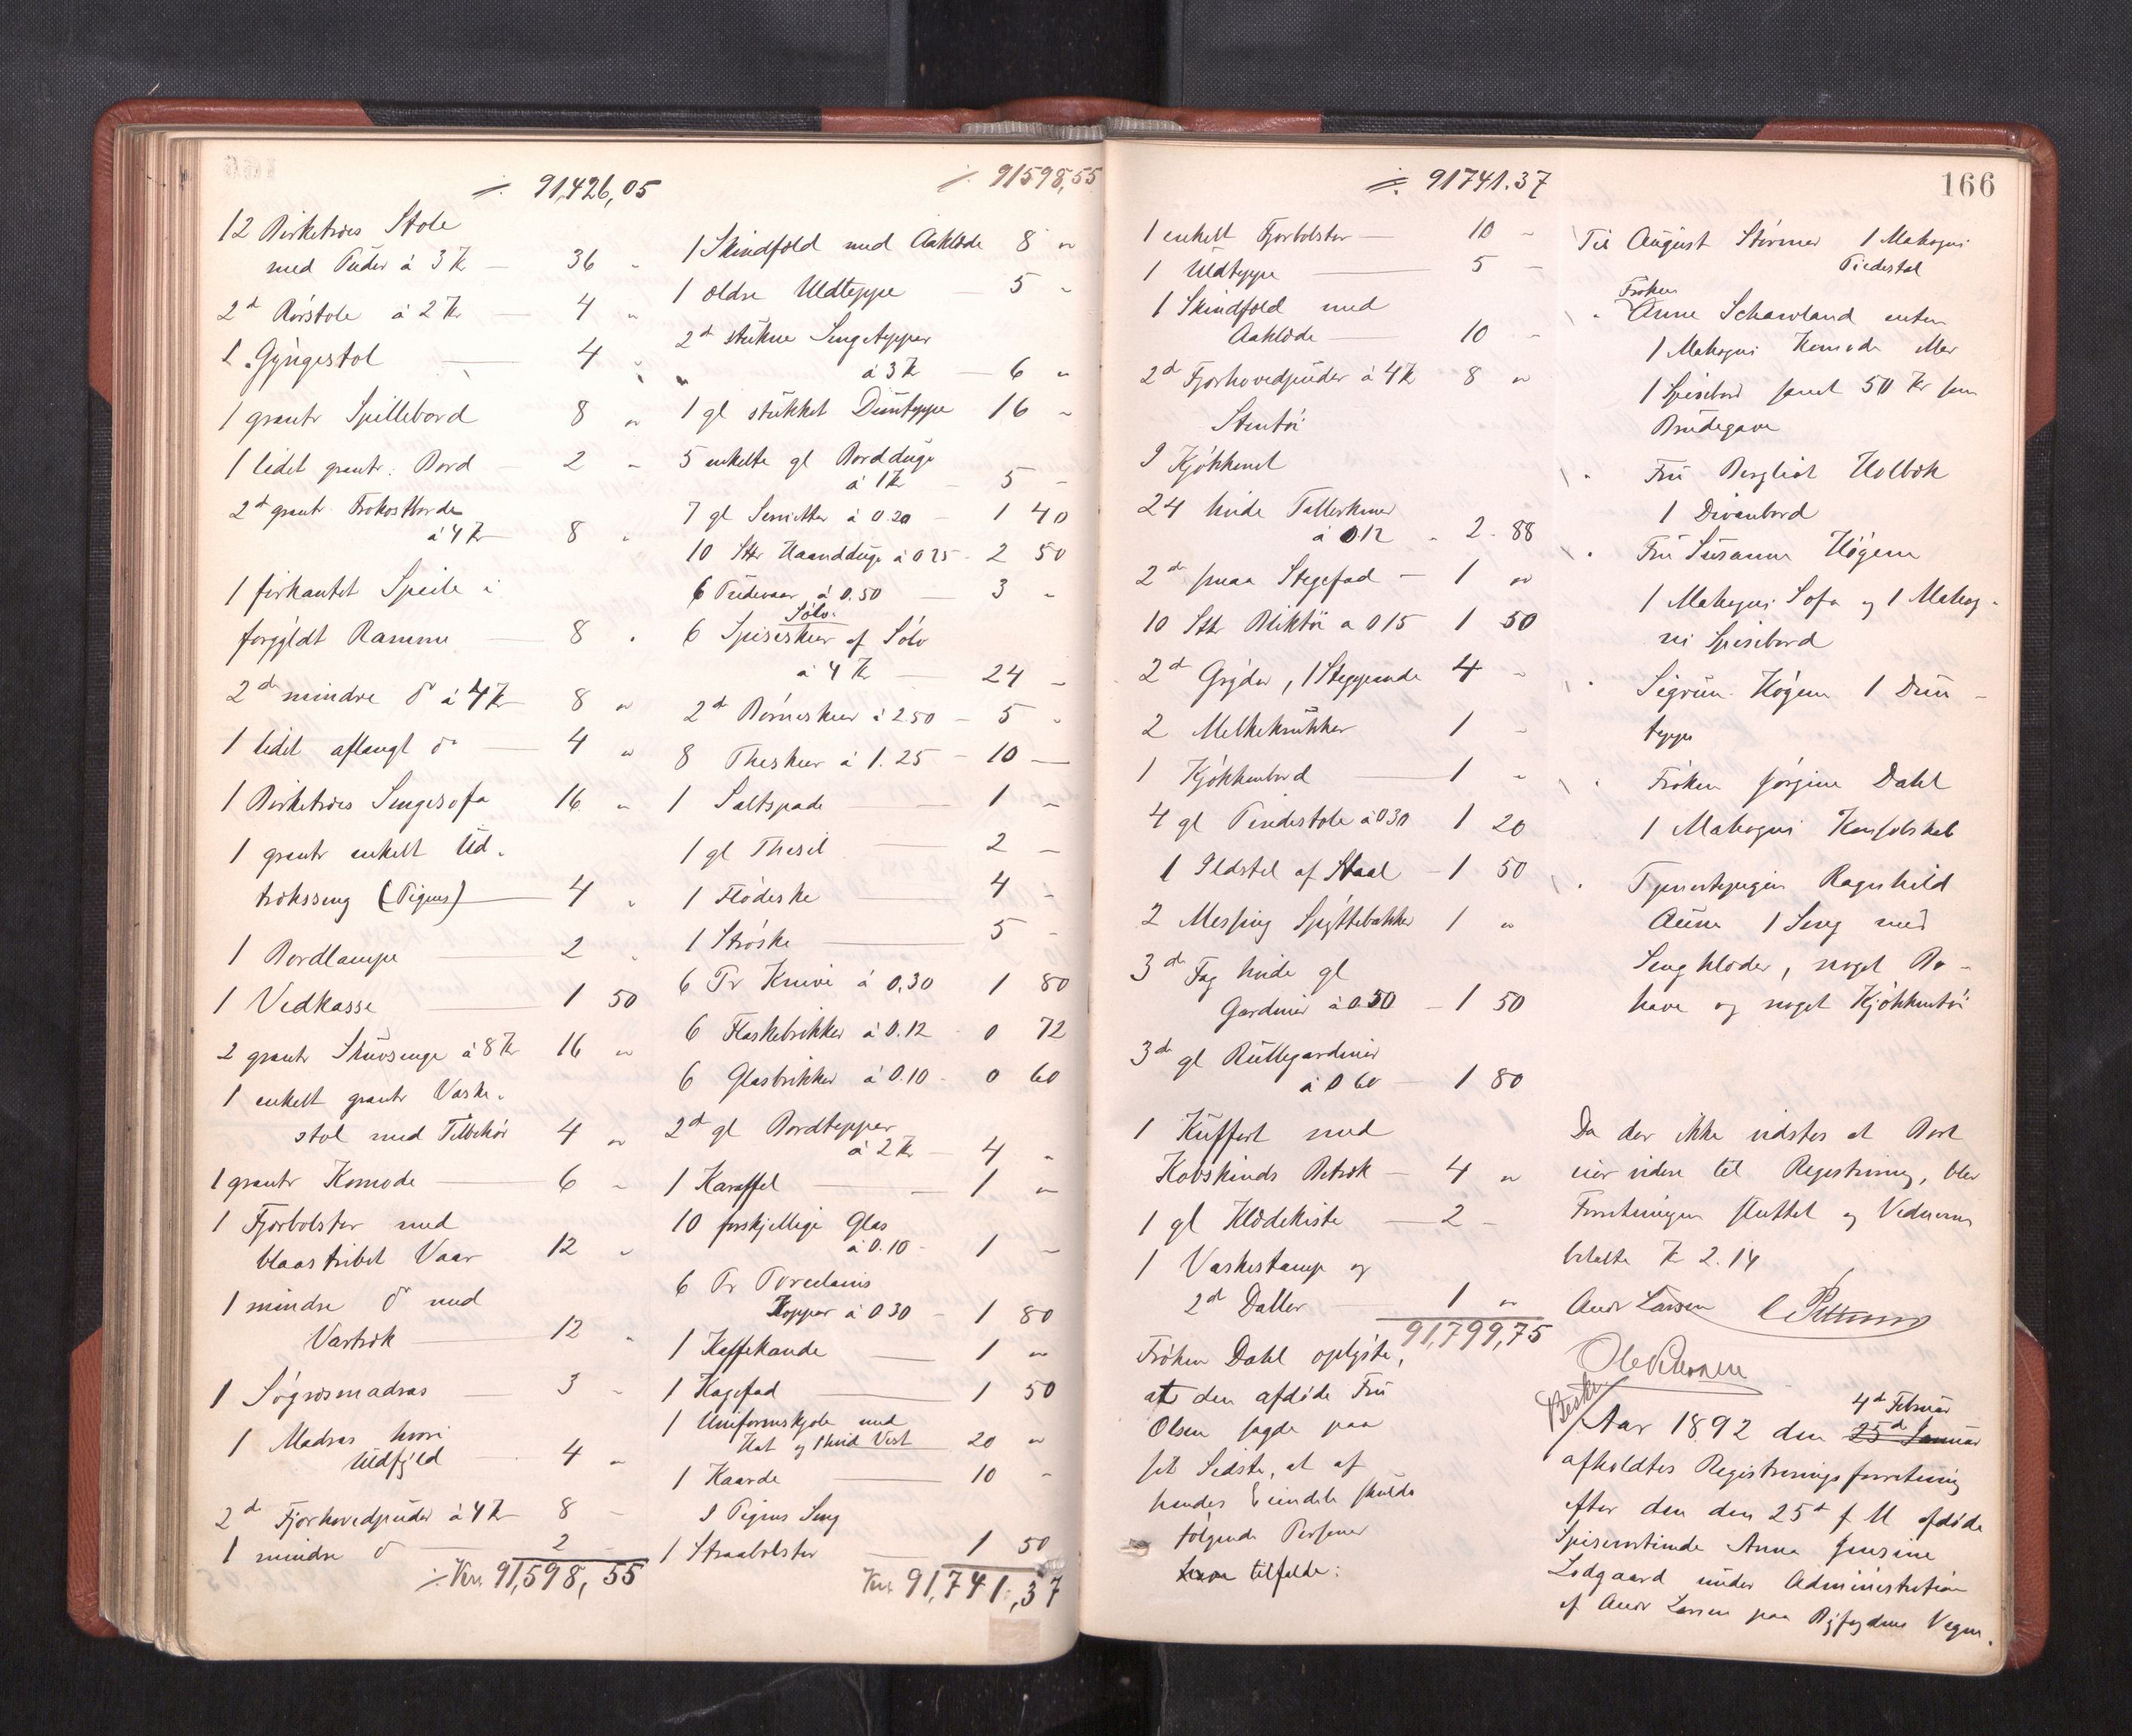 ⁒ 91,426,05
12 Birketræs Stole
med Puder à 3 Kr — 36 "
2de Rørstole à 2 Kr — 4 "
1 Gyngestol — 4 "
1 grantr Spillebord 8 "
1 lidet grantr. Bord 2 "
2de grantr Frokostborde
à 4 Kr — 8 "
1 firkantet Speile i
forgyldt Ramme — 8 "
2de mindre do à 4 Kr 8 "
1 lidet aflangt do — 4 "
1 Birketræs Sengesofa 16 "
1 grantr enkelt Ud-
træksseng (Pigens) — 4 "
1 Bordlampe — 2 "
1 Vedkasse — 1 50
2 grantr Skuvsenge à 8 Kr 16 "
1 enkelt grantr Vaske-
stol med Tilbehør 4 "
1 grantr Komode — 6 "
1 Fjærbolster med
blaastribet Vaar 12 "
1 mindre do med
Vartræk — 12 "
1 Søgræsmadras — 3 "
1 Madras hvori
Uldfyld — 4 "
2de Fjærhovedpuder à 4 Kr 8 "
1 mindre do — 2
⁒ Kr. 91,598,55
⁒ 91598,55
1 Skindfæld med Aaklæde 8 "
1 ældre Uldteppe — 5 "
2de stukne Sengetepper
à 3 Kr — 6 "
1 gl stukket Dunteppe 16 "
5 enkelte gl Bordduge
à 1 Kr — 5 "
7 gl Servietter à 0.20 — 1 40
10 Stk Haandduge à 0 25 - 2 50
6 Pudevaar à 0.50 — 3 "
Sølv.
6 Spiseskeer af Sølv
à 4 Kr — 24 "
2de Børneskeer à 2 50 — 5 "
8 Theskeer à 1.25 — 10 —
1 Saltspade — 1 "
1 gl Thesil — 2 —
1 Flødeske — 4 "
1 Strøske — 5 "
6 Pr Knive à 0,30 1 80
6 Flaskebrikker à 0.12 - 0 72
6 Glasbrikker à 0.10 - 0 60
2de gl Bordtepper
à 2 Kr — 4 "
1 Karaffel — 1 "
10 forskjellige Glas
à 0.10 - 1 "
6 Pr Porcelains
Kopper à 0 30 — 1 80
1 Kaffekande — 1 "
1 Kagefad — 1 50
1 Uniformskjole med
Hat og hvid Vest 20 "
1 Kaarde — 10 "
I Pigens Seng
1 Straabolster — 1 50
Kr. 91,741,37
⁒ 91741.37
1 enkelt Fjærbolster — 10 "
1 Uldteppe — 5 "
1 Skindfæld med
Aaklæde — 10 "
2de Fjærhovedpuder à 4 Kr 8 "
Stentøi
I Kjøkkenet
24 hvide Tallerkener
à 0.12 - 2 - 88
2de smaa Stegefad — 1 "
10 Stk Bliktøi a 0 15 1 50
2de Gryder, 1 Stegepande 4 "
2 Melkekrukker 1 "
1 Kjøkkenbord — 1 "
4 gl Pindestole à 0 30 1 20
1 Ildstel af Staal — 1 50
2 Messing Spyttebakker 1 "
3de Fag hvide gl
Gardiner à 0.50 — 1 50
3de gl Rullegardiner
à 0 60 — 1 80
1 Kuffert med
Kobskinds Betræk — 4 "
1 gl Klædekiste — 2 "
1 Vaskestamp og
2de Daller — 1 "
91,799,75
Frøken Dahl oplyste,
at den afdøde Fru
Olsen sagde paa
sit Sidste, at af
hendes Eiendele skulde
følgende Personer
tilfalde:
166
Til August Størmer 1 Mahogni
Piedestal
Frøken
" Anne Schavland enten
1 Mahogni Komode eller
1 Spisebord samt 50 Kr som
Brudegave
" Fru Bergliot Holbæk
1 Divanbord
" Fru Susanne Høgenu
1 Mahogni Sofa og 1 Mahog-
ni Spisebord
" Sigrun Høgenu 1 Dun-
teppe
" Frøken Jørgine Dahl
1 Mahogni Konsolskab
" Tjenestepigen Ragnhild
Aune 1 Seng med
Sengklæder, noget Bo-
have og noget Kjøkkentøi
Da der ikke vidstes at Boet
eier videre til Registrering, blev
Forretningen sluttet og Vidnerne
betalte Kr 2.14
Andr Larsen C Petterson
Ole Petersen
Beskr
4de Februar
Aar 1892 den 25de Januar
afholdtes Registreringsforretning
efter den den 25de f M afdøde
Spiseværtinde Anna Jensine
Lodgaard under Administration
af Andr Larsen paa Byfogdens Vegne.